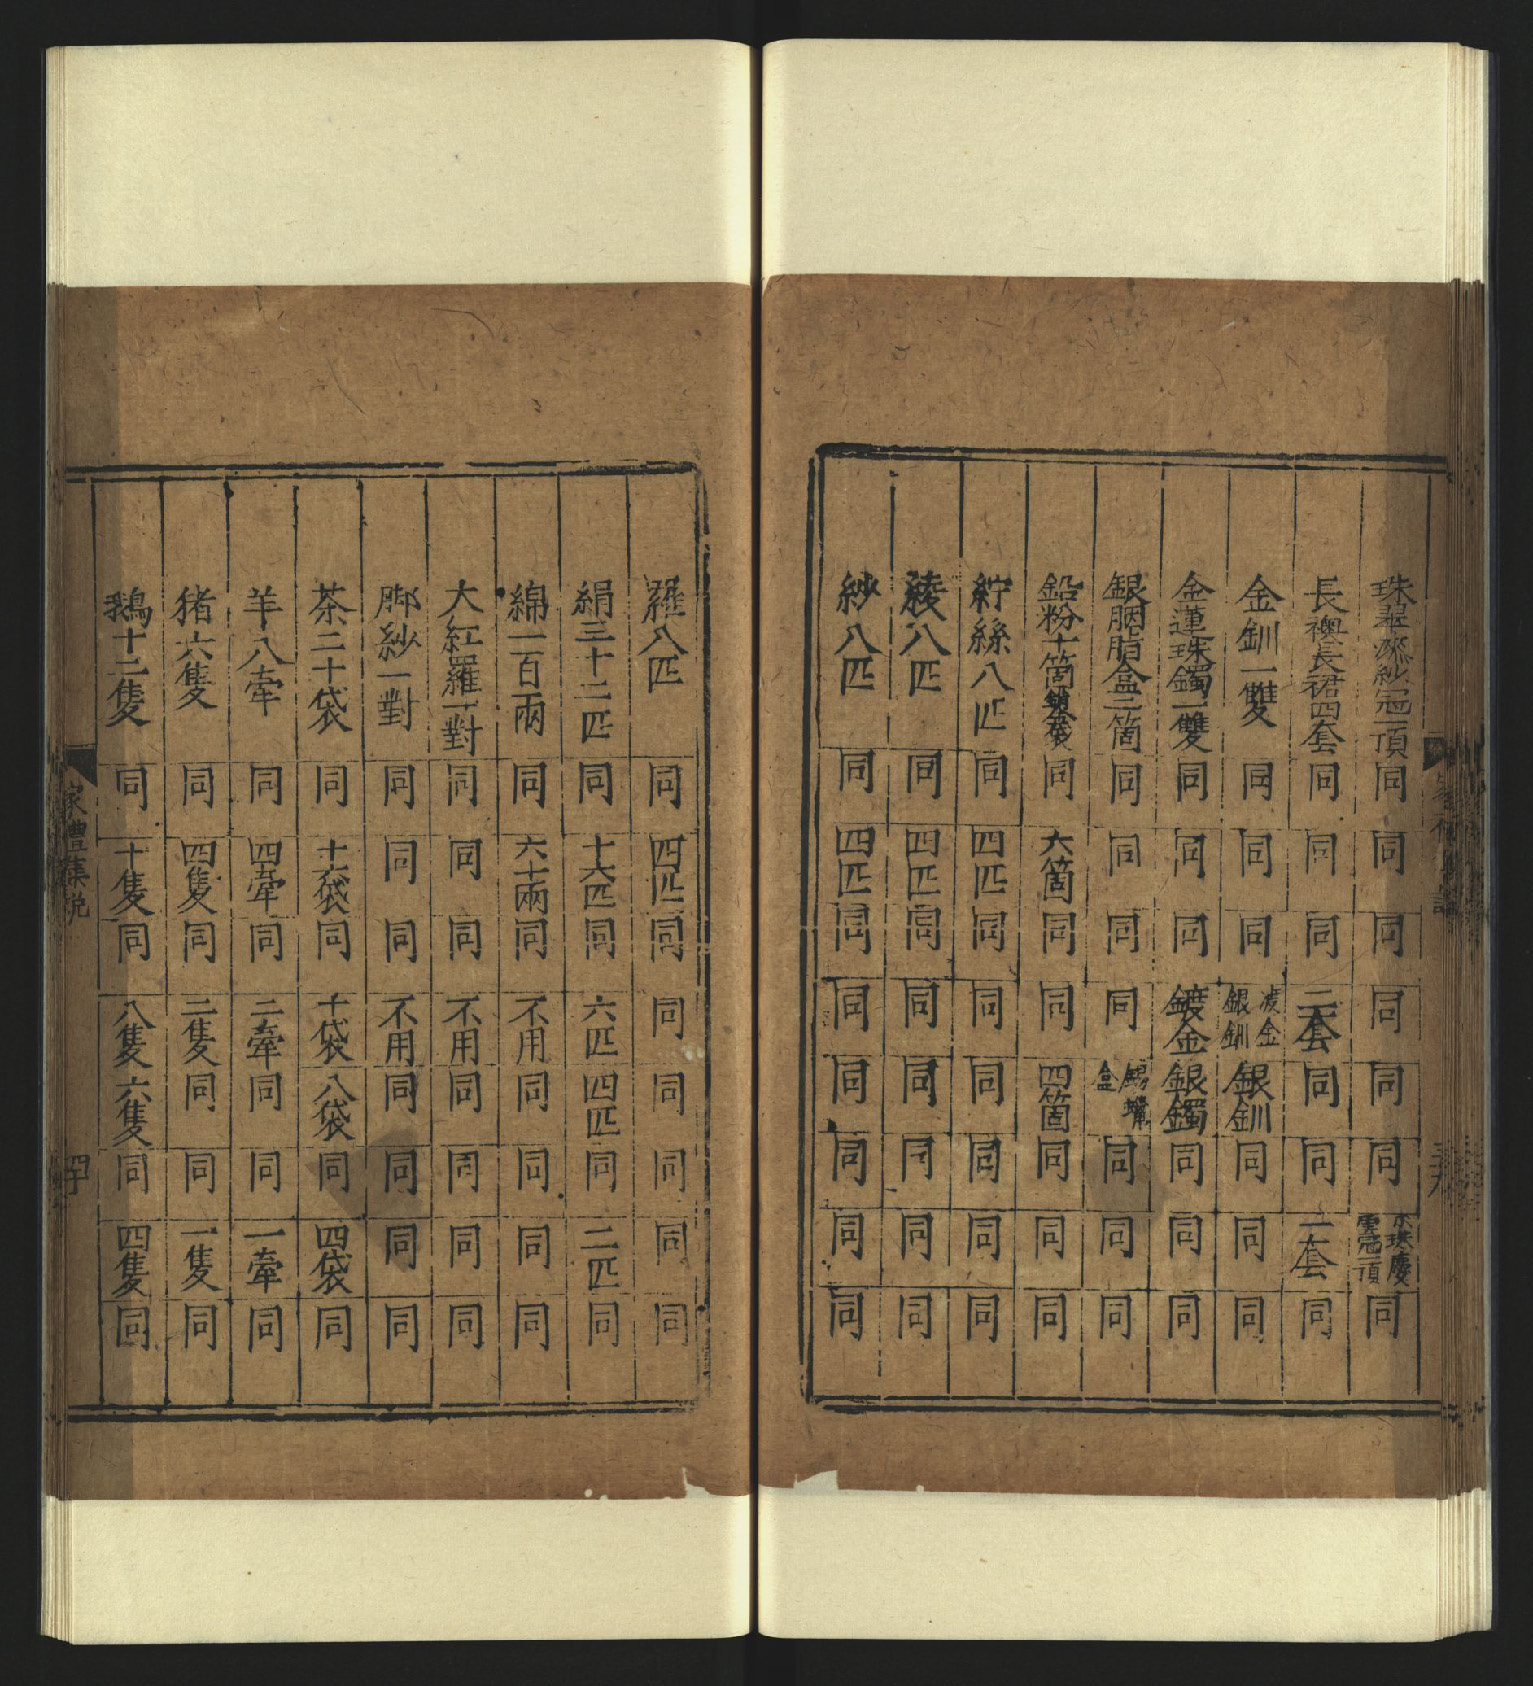 珠翠漆紗冠一頂 同 同 同 同 同 同 小珠慶雲冠一頂 同
長襖長裙四套 同 同 同 二套 同 同 一套 同
金釧一雙 同 同 同 鍍金銀釧 銀釧 同 同 同
金蓮珠鐲一雙 同 同 同 鍍金 銀鐲 同 同 同
銀胭脂盒二箇 同 同 同 同 錫蠟盒 同 同 同
鉛粉十箇 同 六箇 同 同 四箇 同 同 同
紵絲八匹 同 四匹 同 同 同 同 同 同
綾八匹 同 四匹 同 同 同 同 同 同
紗八匹 同 四匹 同 同 同 同 同 同
羅八匹 同 四匹 同 同 同 同 同 同
絹三十二匹 同 十六匹 同 六匹 四匹 同 二匹 同
綿一百兩 同 六十兩 同 不用 同 同 同 同
大紅羅一對 同 同 同 不用 同 同 同 同
脚紗一對 同 同 同 不用 同 同 同 同
茶二十袋 同 十六袋 同 十袋 八袋 同 四袋 同
羊八牽 同 四牽 同 二牽 同 同 一牽 同
猪六隻 同 四隻 同 二隻 同 同 一隻 同
鵝十二隻 同 十隻 同 八隻 六隻 同 四隻 同
家禮集說 四十